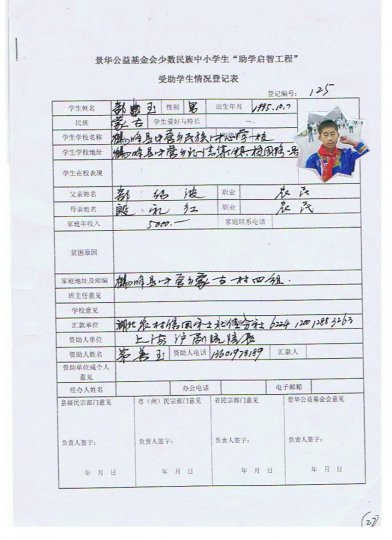 景华公益基金会少数民族中小学生“助学启智工程”
受助学生情况登记表
登记编号： 125
学生姓名 部 玉 性别 男 出生年月 1995.10.7
民族 蒙古 学生爱好与特长
学生学校名称 鹤峰县中营乡民族中心学校
学生学校地址 鹤峰县中营乡
学生在校表现
父亲姓名 部 波 职业 农民
母亲姓名 殷 礼 红 职业 农民
家庭年收入 5000— 家庭联系电话
贫困原因
家庭地址及邮编 鹤峰县中营乡蒙古村四组
班主任意见
学校意见
汇款单位 湖北农村信用社北佳分社 6224
资助人单位 上海沪剧院院长
资助人姓名 茅善玉 资助人电话 13601978189 汇款人
资助单位或个人意见
经办人姓名 办公电话 电子邮箱
县级民宗部门意见 市（州）民宗部门意见 省民宗部门意见 景华公益基金会意见
负责人签字： 负责人签字： 负责人签字： 负责人签字：
年 月 日 年 月 日 年 月 日 年 月 日
(27)